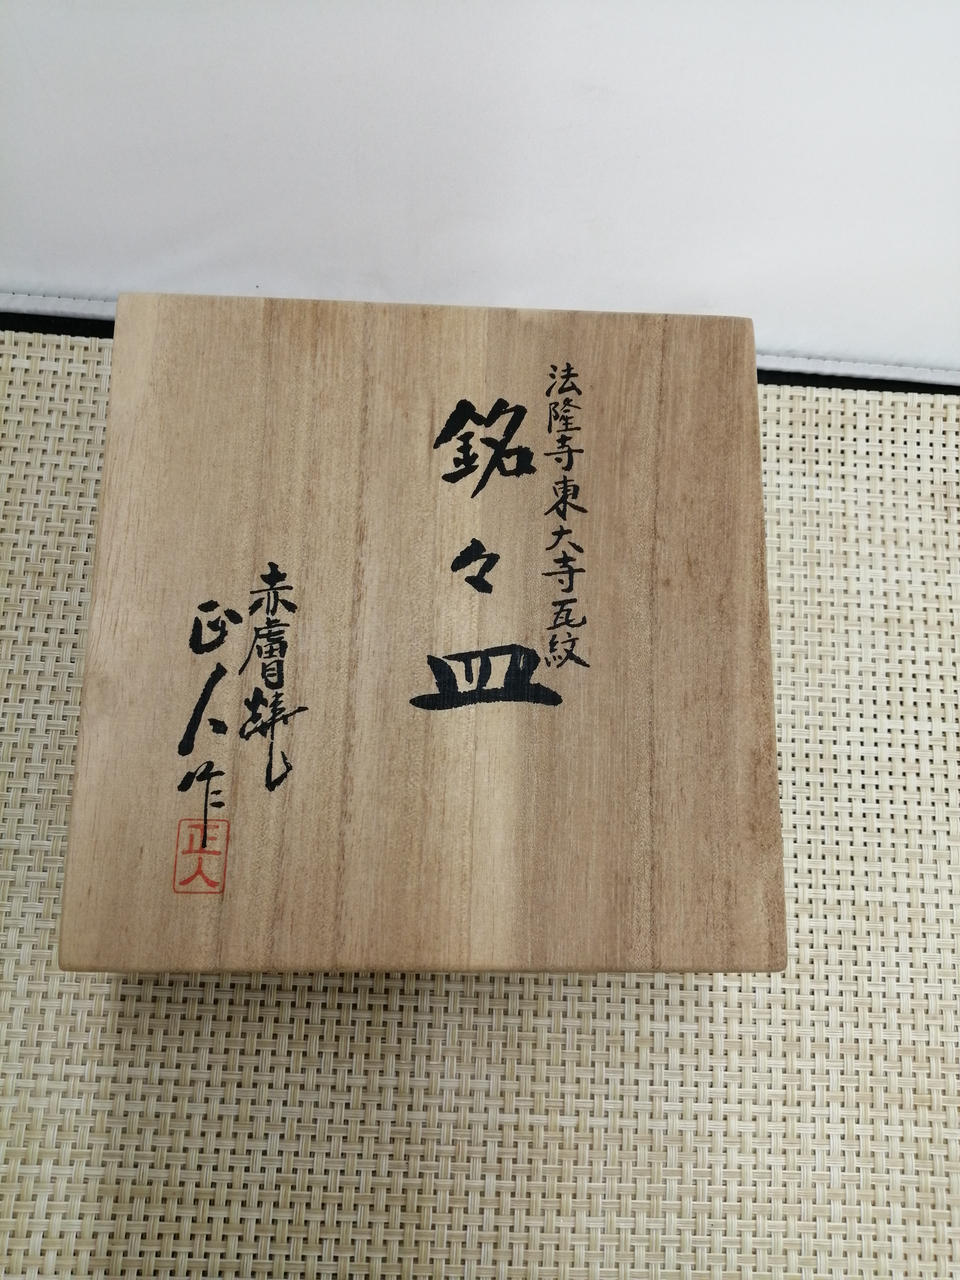 法隆寺東大寺瓦紋
銘々皿
赤膚焼
正人作
正人